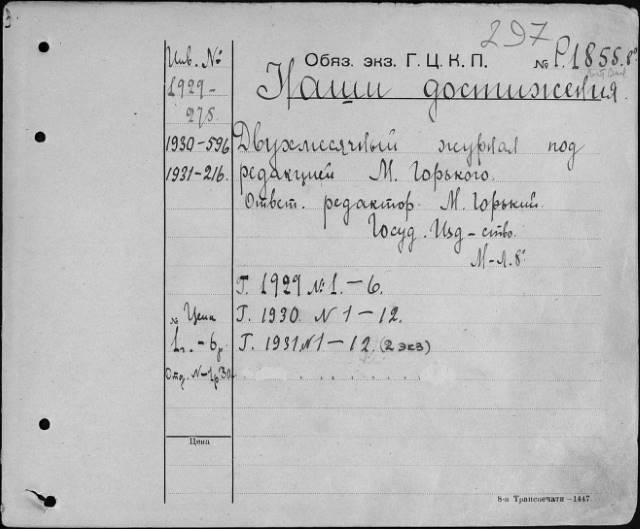 297
Инв. №
Обяз. экз. Г. Ц. К. П. № Р.1855. 8°
1929-
275
Наши достижения.
1930-596 Двухмесячный журнал под
1931-216. редакцией М. Горького.
Ответ. редактор М. Горький.
Госуд. Изд-ство.
М-Л. 8°
Г. 1929 № 1.-6.
№ Цена Г. 1930. N 1-12.
1г.-6р. Г. 1931 N 1-12. (2 экз)
Отд. N-1р30
Цена
8-я Транспечати-1447.